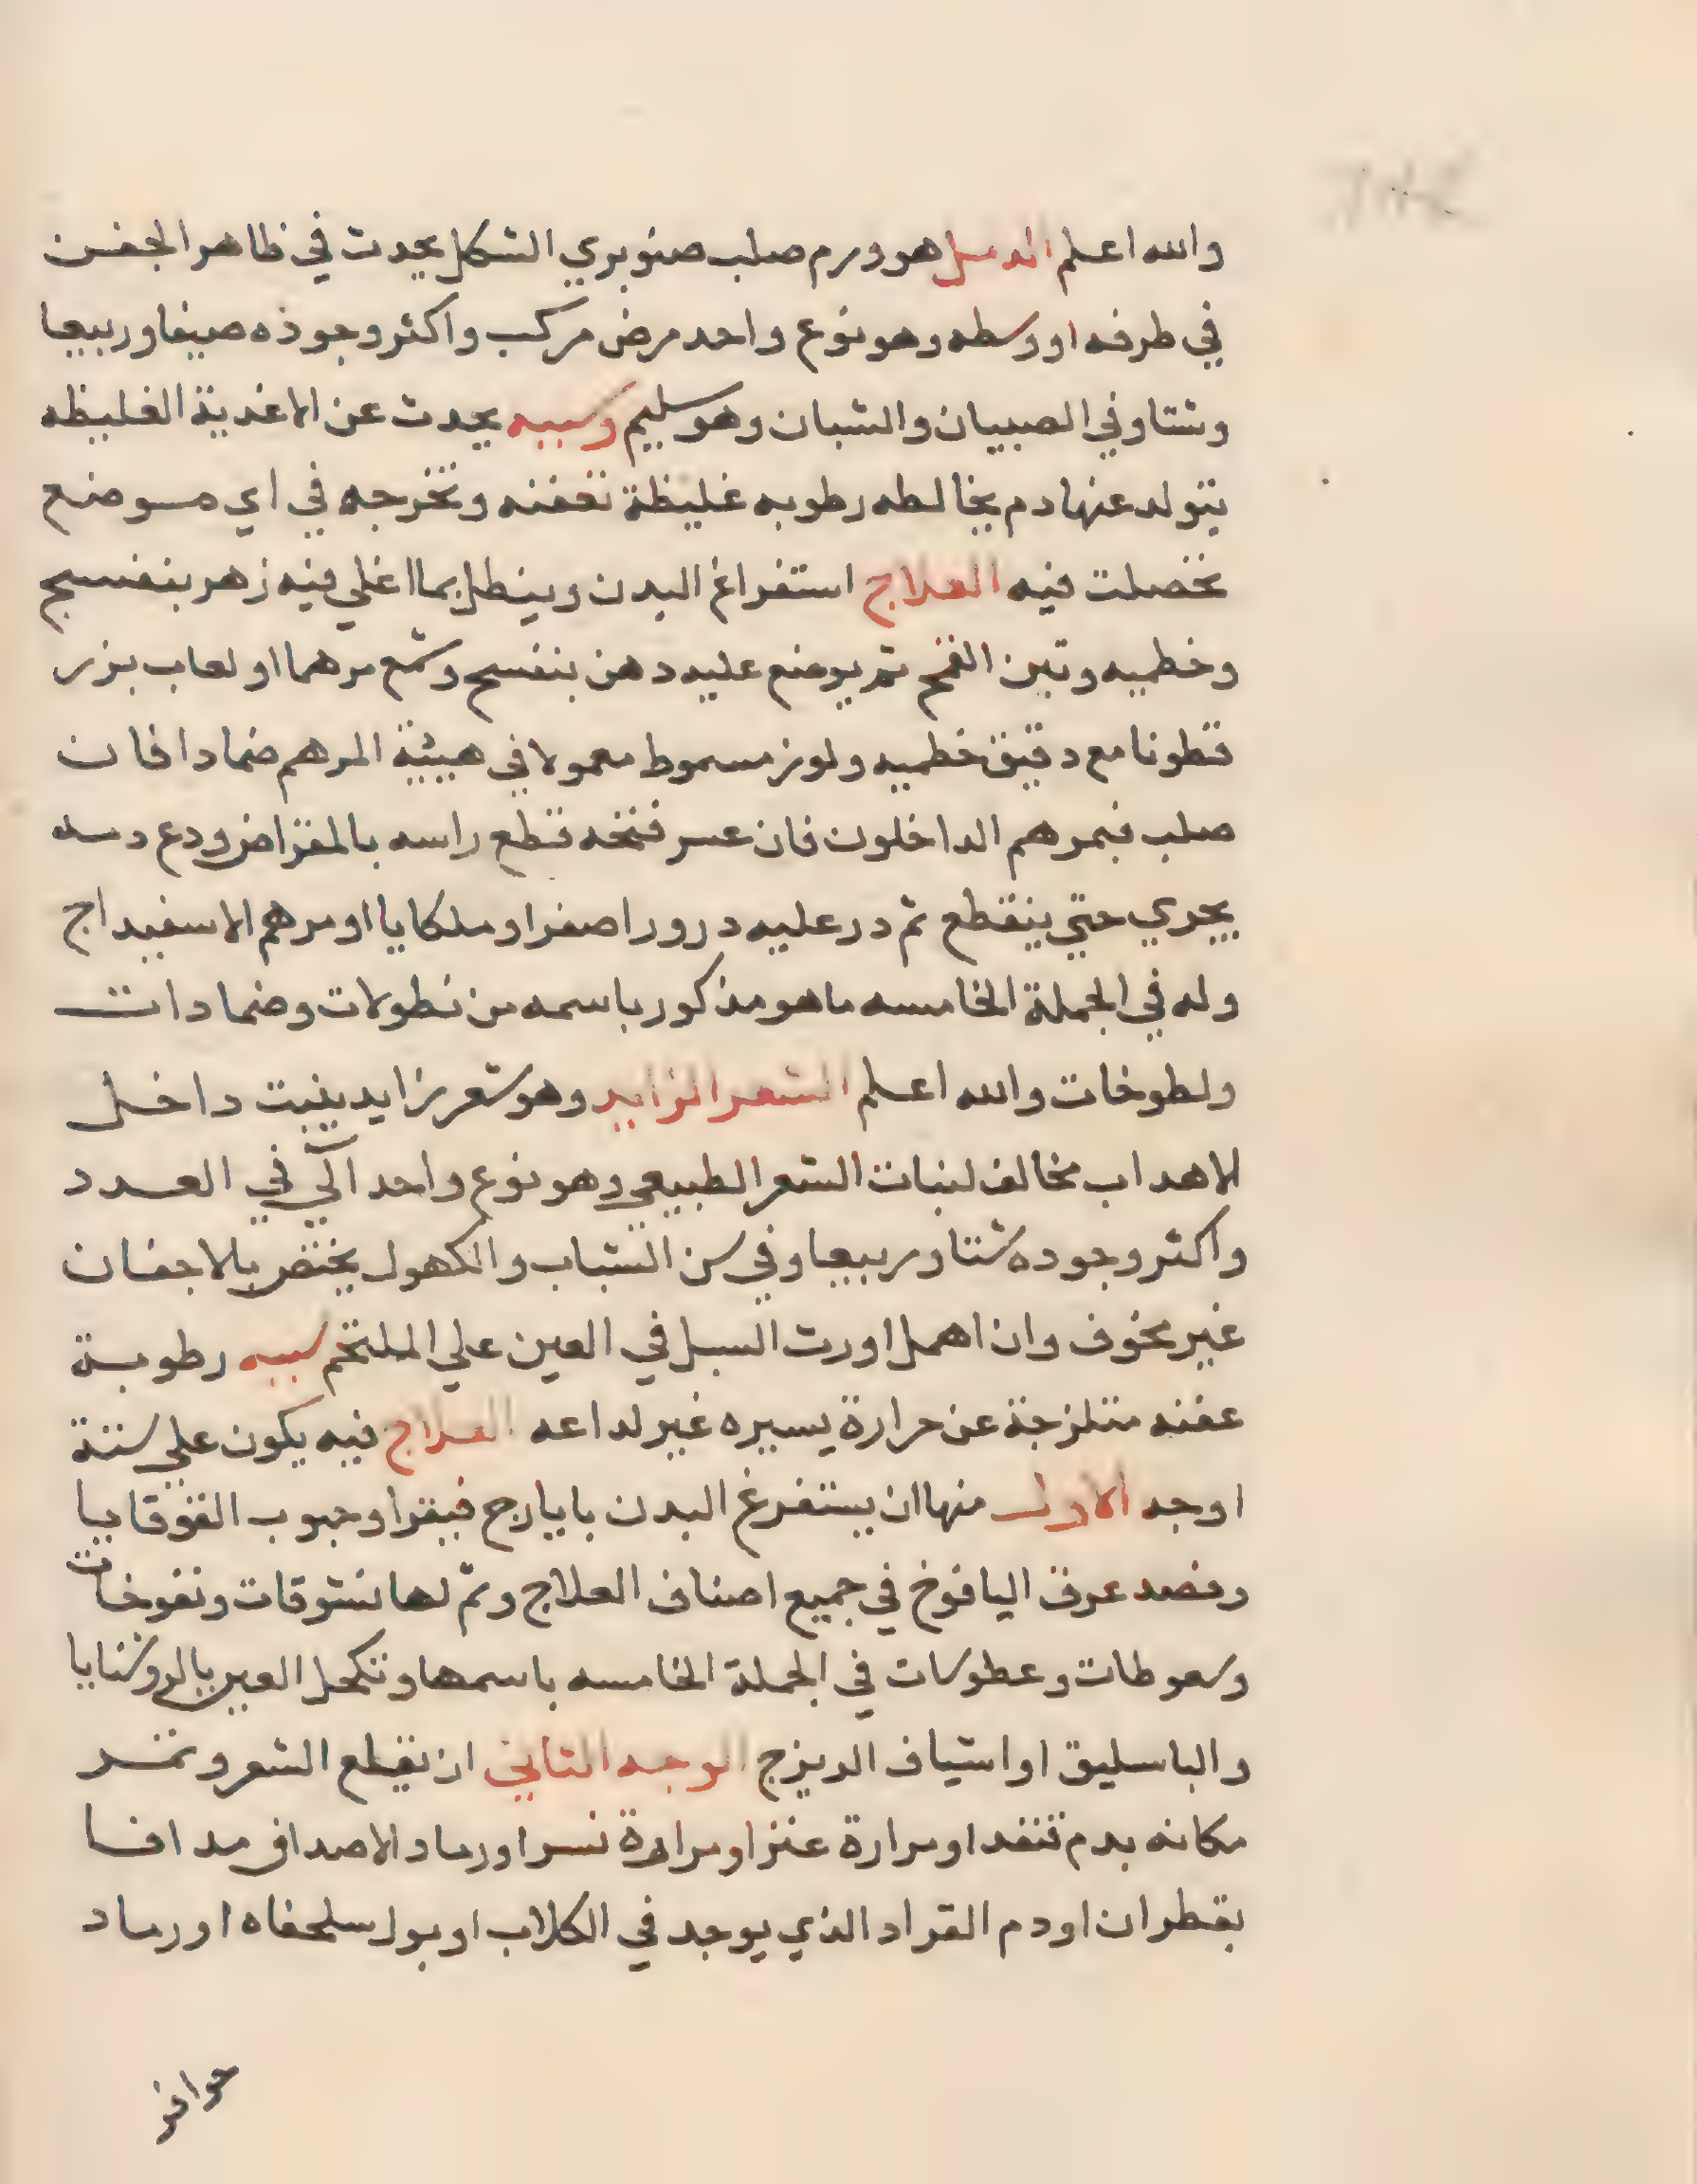 والله اعلم الدمل هو ورم صلب صنوبري الشكل يحدث في ظاهر الجفن
في طرفه او وسطه وهو نوع واحد مرض مركب واكثر وجوذه صيفا وربيعا
وشتا وفي الصبيان والشبان وهو سليم وسببه يحدث عن الاغدية الغليظه
يتولد عنها دم يخالطه رطوبه غليظة تعفنه وتخرجه في اي موضع
تحصلت فيه العلاج استفراغ البدن وينطل بما اغلي فيه زهر بنفسج
وخطميه وتبن القمح ثم يوضع عليه دهن بنفسج وشمع مرهما او لعاب بزر
قطونا مع دقيق خطميه ولوز مسموط معمولا في هيئة المرهم ضمادا فان
صلب فبمرهم الداخلون فان عسر فتحه قطع راسه بالمقراض ودع دمه
يجري حتي ينقطع ثم در عليه درورا اصفر او ملكايا او مرهم الاسفيداج
وله في الجملة الخامسه ما هو مذكور باسمه من نطولات وضمادات
ولطوخات والله اعلم الشعر الزايد وهو شعر زايد ينبت داخل
الاهداب مخالف لنبات الشعر الطبيعي وهو نوع واحد آلي في العدد
واكثر وجوده شتا وربيعا وفي سن الشباب والكهول يختص بالاجفان
غير مخوف وان اهمل اورت السبل في العين علي الملتحم سببه رطوبة
عفنه متلزجة عن حرارة يسيره غير لداعه العلاج فيه يكون علي ستة
اوجه الاول منها ان يستفرغ البدن بايارج فيقرا وحبوب القوقايا
وفصد عرق اليافوخ في جميع اصناف العلاج وثم لها نشوقات ونفوخات
وسعوطات وعطوسات في الجملة الخامسه باسمها وتكحل العين بالروشنايا
والباسليق او اشياف الديزج الوجه الثاني ان تقطع الشعر و
مكانه بدم قنفد او مرارة عنز او مرارة نسر او رماد الاصداف مدافا
بقطران او دم القراد الذي يوجد في الكلاب او بول سلحفاه او رماد
حوافر